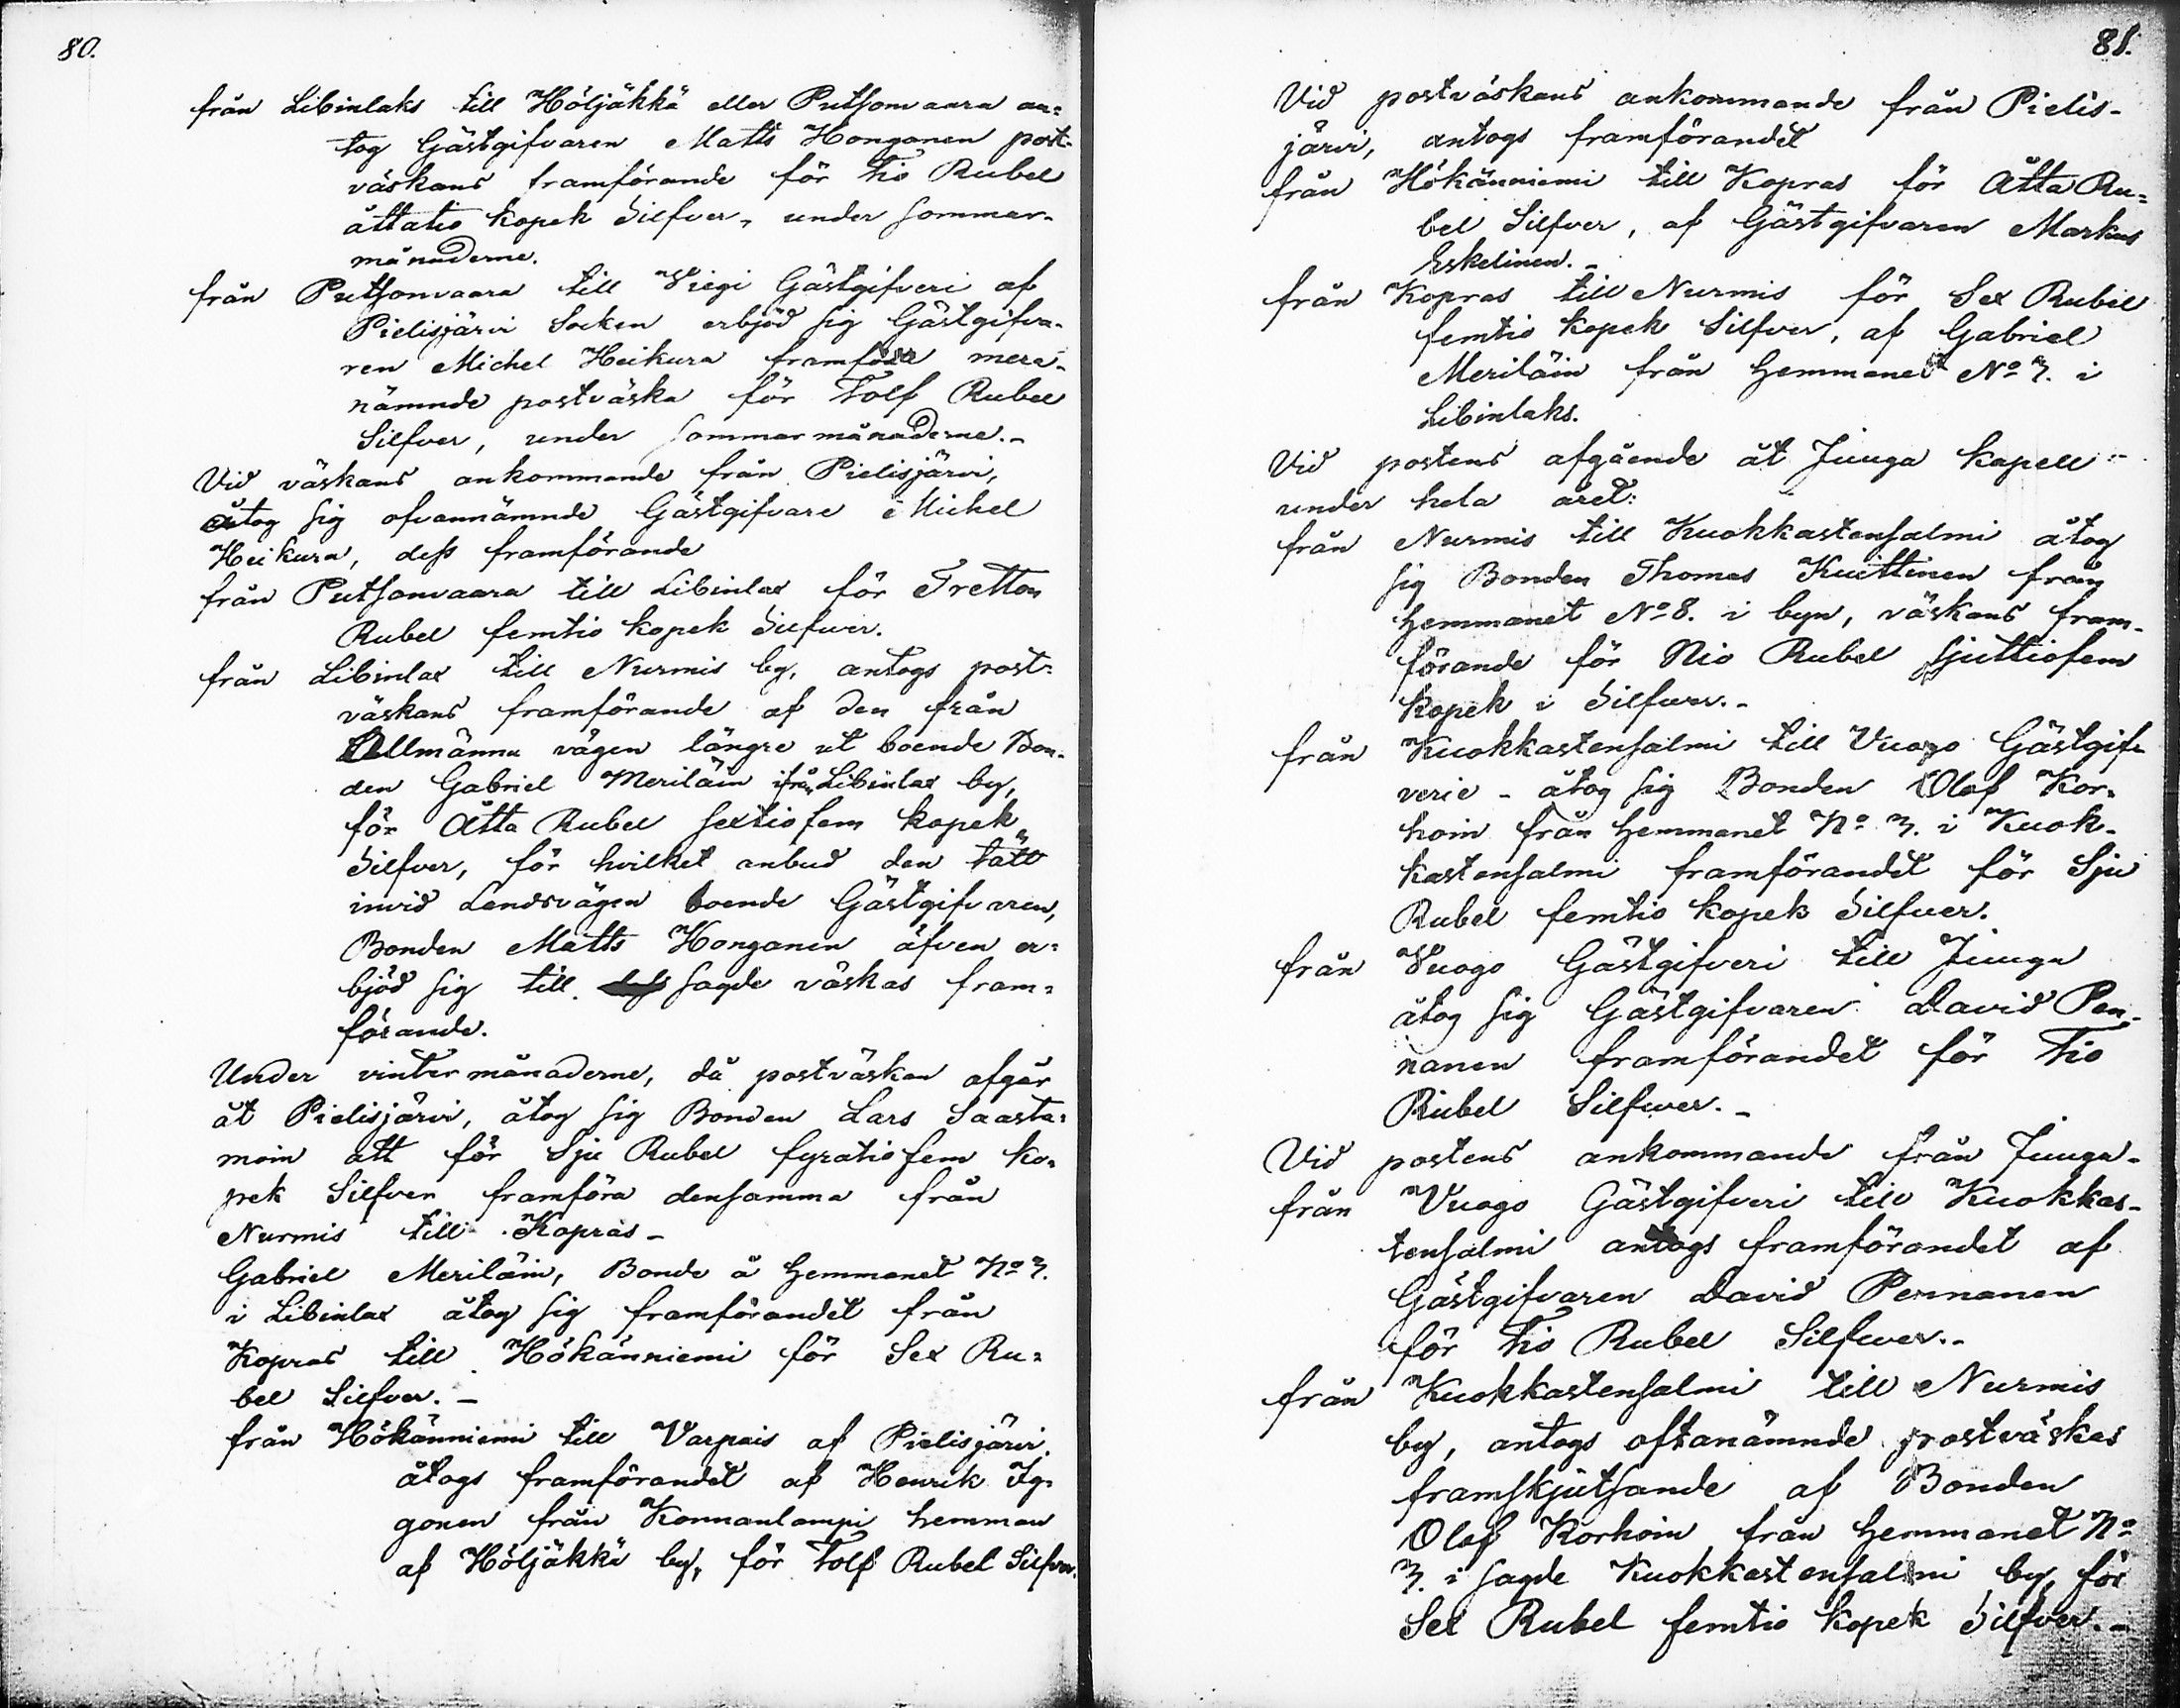 80.
från Libinlaks till Höljäkkä eller Putsonvaara an=
tog Gästgifvaren Matts Honganen post-
väskans framförande för Tio Rubel
åttatio kopek Silfver, under sommar-
månaderne.
från Putsonvaara till Viegi Gästgifveri af
Pielisjärvi Socken erbjöd sig Gästgifva-
ren Michel Heikura framföra mera-
nämnde postväska för Tolf Rubel
Silfver, under sommarmånaderne.-
Vid väskans ankommande från Pielisjärvi,
åtog sig ofvannämnde Gästgifvare Michel
Heikura, dess framförande
från Putsonvaara till Libinlax för Tretton
Rubel femtio kopek Silfver.
från Libinlax till Nurmis by, antogs post=
väskans framförande af den från
Allmänna vägen längre ut boende Bon-
den Gabriel Meriläin ifrån Libinlax by,
för Åtta Rubel sextiofem kopek
Silfver, för hvilket anbud den tätt
invid Landsvägen boende Gästgifvaren,
Bonden Matts Honganen äfven er=
bjöd sig till sagde väskas fram=
förande.
Under vintermånaderne, då postväskan afgår
åt Pielisjärvi, åtog sig Bonden Lars Saasta=
moin att för Sju Rubel fyratiofem ko=
pek Silfver framföra densamma från
Nurmis till Kopras-
Gabriel Meriläin, Bonde å Hemmanet No 3.
i Libinlax åtog sig framförandet från
Kopras till Hökänniemi för Sex Ru=
bel Silfver.-
från Hökänniemi till Varpais af Pielisjärvi
åtogs framförandet af Henrik Ig-
gonen från Konnanlampi hemman
af Höljäkkä by, för Tolf Rubel Silfver.
81.
Vid postväskans ankommande från Pielis-
järvi, antogs framförandet
från Hökänniemi till Kopras för Åtta Ru=
bel Silfver, af Gästgifvaren Markus
Eskelinen.-
från Kopras till Nurmis för Sex Rubel
femtio kopek Silfver, af Gabriel
Meriläin från Hemmanet No 3. i
Libinlaks.
Vid postens afgående åt Juuga Kapell
under hela året:
från Nurmis till Kuokkastensalmi åtog
sig Bonden Thomas Kuittinen från
Hemmanet No 8. i byn, väskans fram-
förande för Nio Rubel sjuttiofem
kopek i Silfver.-
från Kuokkastensalmi till Vuogo Gästgif-
verie - åtog sig Bonden Olof Kor-
hoin från Hemmanet No 3. i Kuok-
kastensalmi framförandet för Sju
Rubel femtio kopek Silfver.
från Vuogo Gästgifveri till Juuga
åtog sig Gästgifvaren David Pen-
nanen framförandet för Tio
Rubel Silfver.-
Vid postens ankommande från Juuga-
från Vuogo Gästgifveri till Kuokkas-
tensalmi antogs framförandet af
Gästgifvaren David Pennanen
för Tio Rubel Silfver.-
från Kuokkastensalmi till Nurmis
by, antogs oftanämnde postväskas
framskjutsande af Bonden
Olof Korhoin från Hemmanet No
3. i sagde Kuokkastensalmi by, för
Sex Rubel femtio kopek Silfver.-